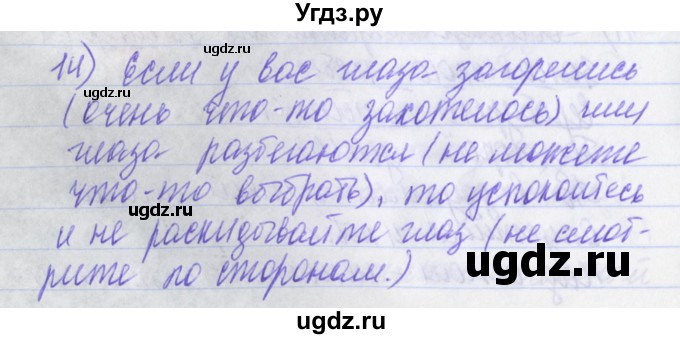 Угдз.ру
14) Если у вас глаза загорелись
(очень что-то захотелось) или
глаза разбегаются (не можете
что-то выбрать), то успокойтесь
и не раскидывайте глаз (не смот-
рите по сторонам.)
ugdz.ru
ugdz.ru
ugdz.ru
ugdz.ru
ugdz.ru
©ugdz.ru
ugdz.ru